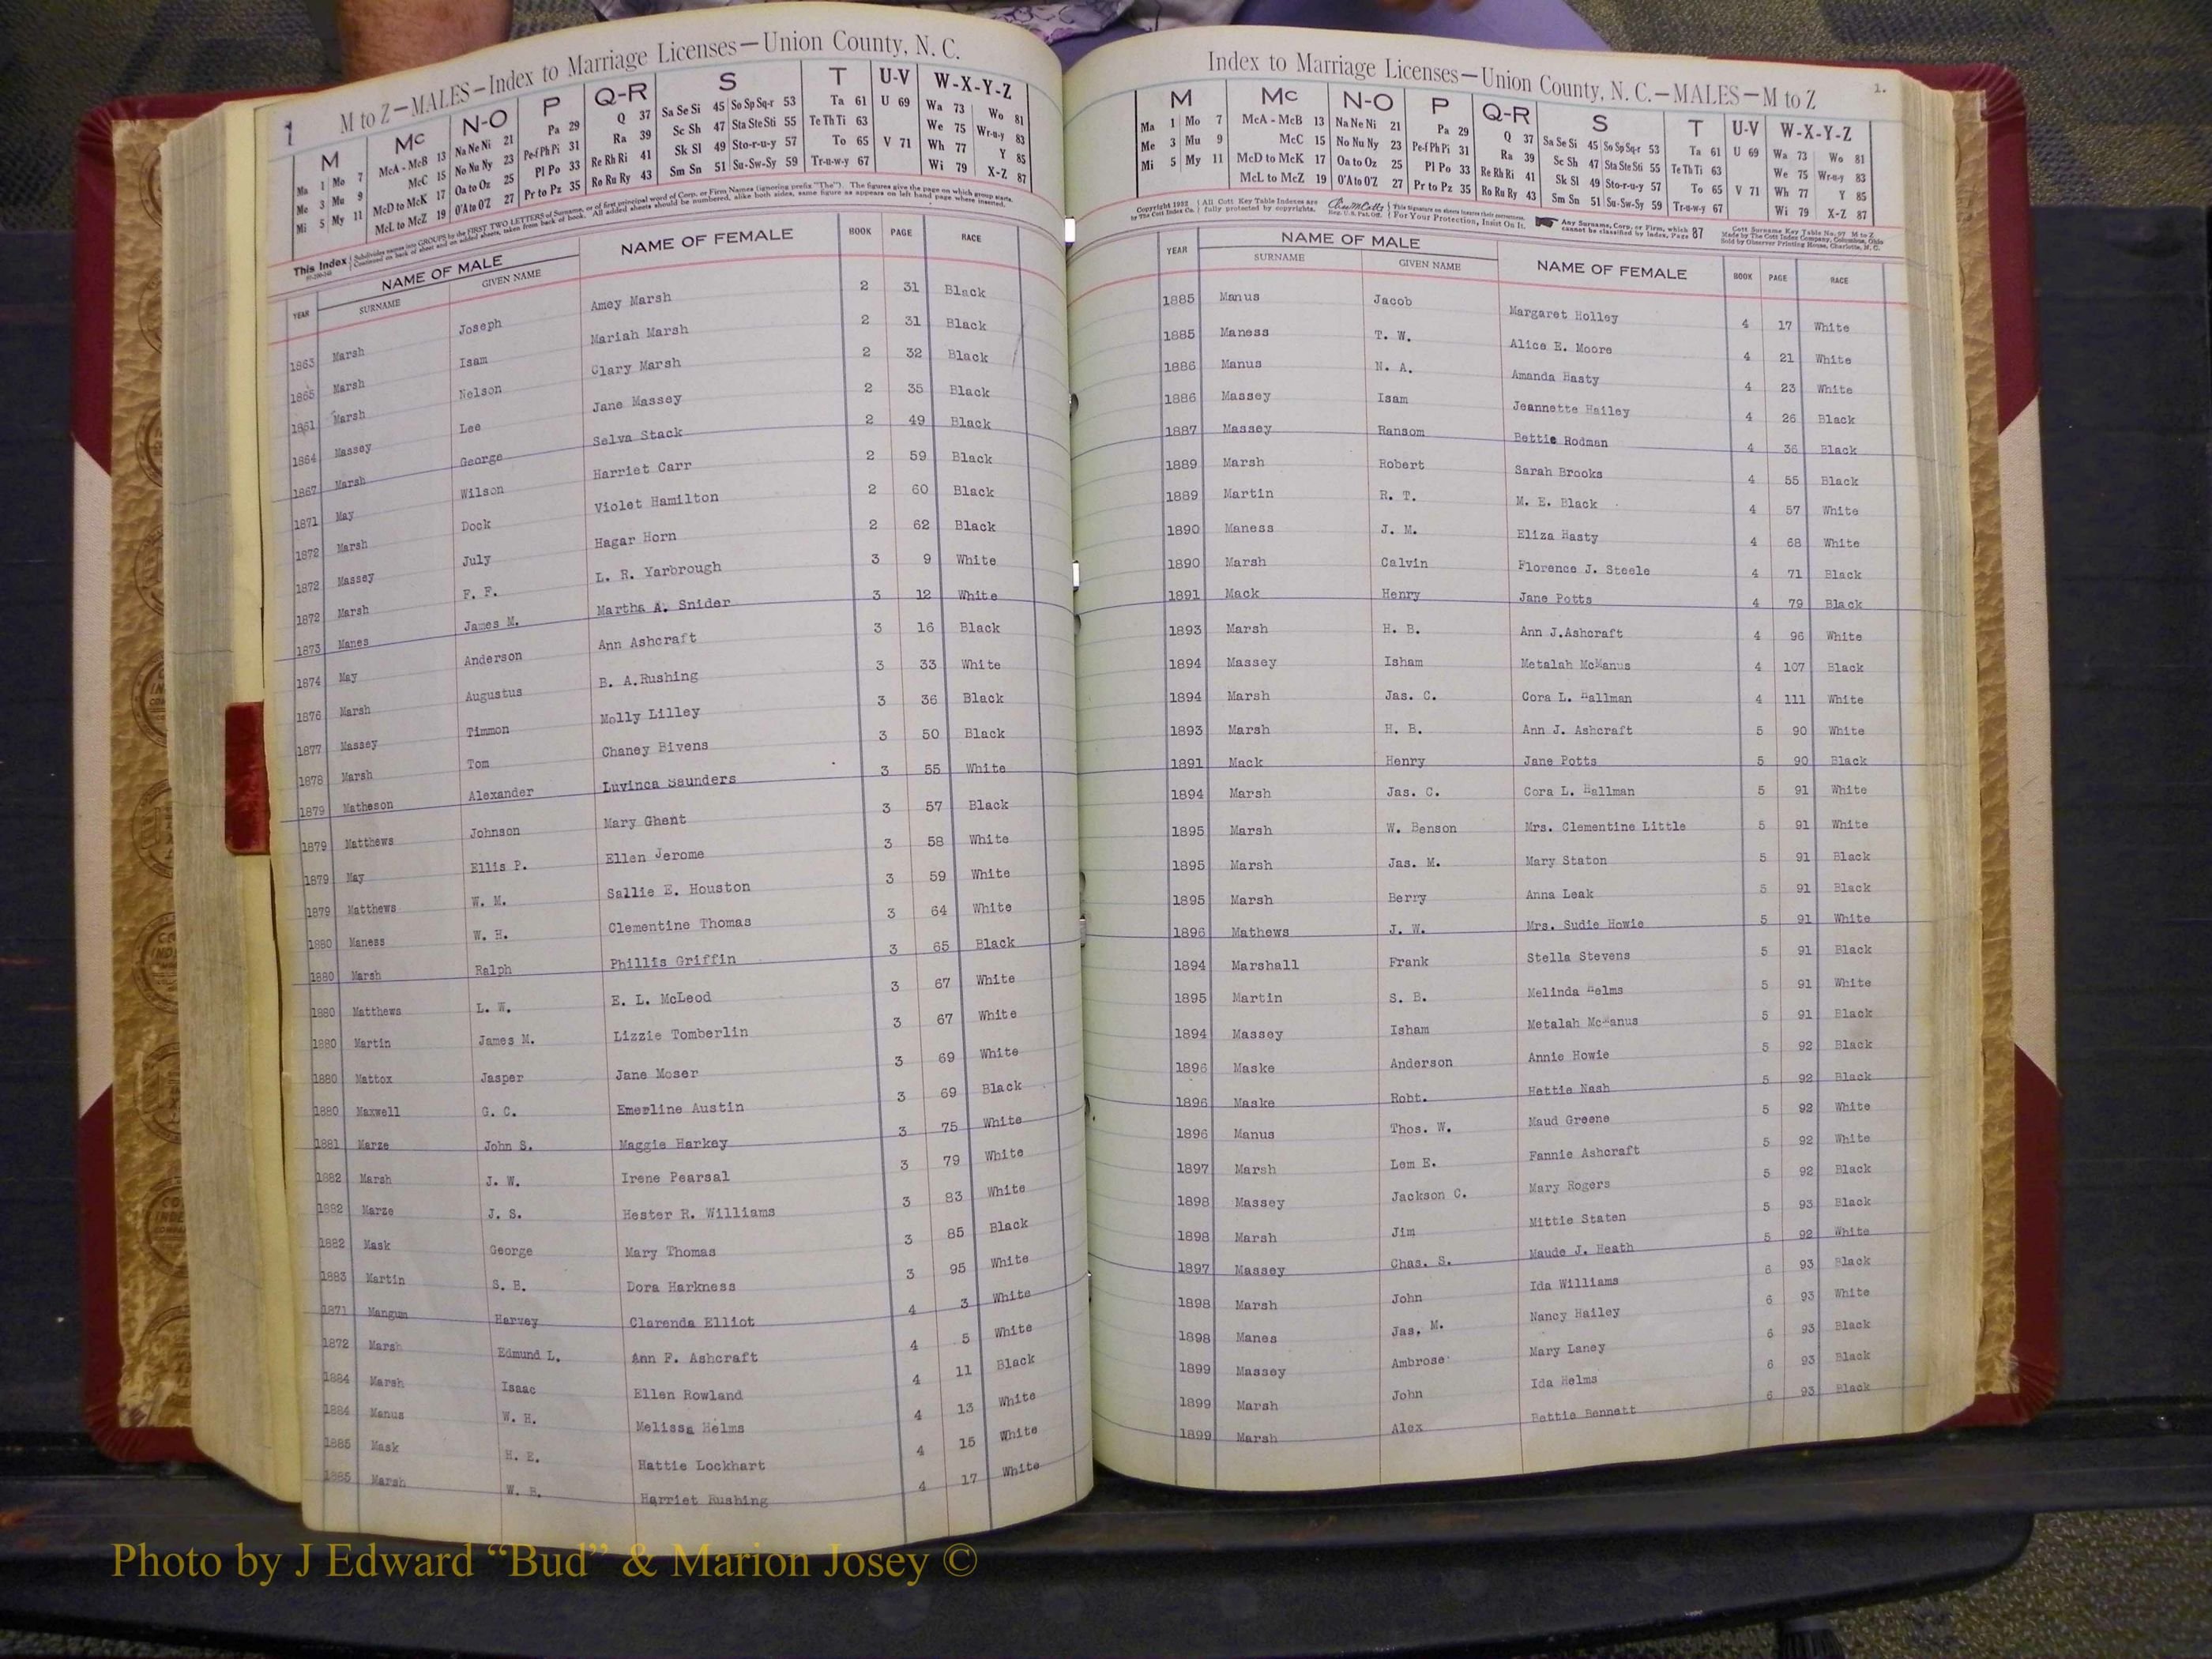 M to Z—MALES—Index to Marriage Licenses—Union County, N. C.
1
M Mc N-O P Q-R S T U-V W-X-Y-Z
Ma 1 Mo 7 McA - McB 13 Na Ne Ni 21 Pa 29 Q 37 Sa Se Si 45 So Sp Sq-r 53 Ta 61 U 69 Wa 73 Wo 81
Me 3 Mu 9 McC 15 No Nu Ny 23 Pe-f Ph Pi 31 Ra 39 Sc Sh 47 Sta Ste Sti 55 Te Th Ti 63 We 75 Wr-u-y 83
Mi 5 My 11 McD to McK 17 Oa to Oz 25 Pl Po 33 Re Rh Ri 41 Sk Sl 49 Sto-r-u-y 57 To 65 V 71 Wh 77 Y 85
McL to McZ 19 O'A to O'Z 27 Pr to Pz 35 Ro Ru Ry 43 Sm Sn 51 Su-Sw-Sy 59 Tr-u-w-y 67 Wi 79 X-Z 87
This Index Subdivides names into GROUPS by the FIRST TWO LETTERS of Surname, or of first principal word of Corp. or Firm Names (ignoring prefix "The"). The figures give the page on which group starts.
Continued on back of sheet and on added sheets, taken from back of book. All added sheets should be numbered, alike both sides, same figure as appears on left hand page where inserted.
YEAR NAME OF MALE NAME OF FEMALE BOOK PAGE RACE
SURNAME GIVEN NAME
1863 Marsh Joseph Amey Marsh 2 31 Black
1865 Marsh Isam Mariah Marsh 2 31 Black
1861 Marsh Nelson Clary Marsh 2 32 Black
1864 Massey Lee Jane Massey 2 35 Black
1867 Marsh George Selva Stack 2 49 Black
1871 May Wilson Harriet Carr 2 59 Black
1872 Marsh Dock Violet Hamilton 2 60 Black
1872 Massey July Hagar Horn 2 62 Black
1872 Marsh F. F. L. R. Yarbrough 3 9 White
1873 Manes James M. Martha A. Snider 3 12 White
1874 May Anderson Ann Ashcraft 3 16 Black
1876 Marsh Augustus B. A.Rushing 3 33 White
1877 Massey Timmon Molly Lilley 3 36 Black
1878 Marsh Tom Chaney Bivens 3 50 Black
1879 Matheson Alexander Luvinca Saunders 3 55 White
1879 Matthews Johnson Mary Ghent 3 57 Black
1879 May Ellis P. Ellen Jerome 3 58 White
1879 Matthews W. M. Sallie E. Houston 3 59 White
1880 Maness W. H. Clementine Thomas 3 64 White
1880 Marsh Ralph Phillis Griffin 3 65 Black
1880 Matthews L. W. E. L. McLeod 3 67 White
1880 Martin James M. Lizzie Tomberlin 3 67 White
1880 Mattox Jasper Jane Moser 3 69 White
1880 Maxwell G. C. Emerline Austin 3 69 Black
1881 Marze John S. Maggie Harkey 3 75 White
1882 Marsh J. W. Irene Pearsal 3 79 White
1882 Marze J. S. Hester R. Williams 3 83 White
1882 Mask George Mary Thomas 3 85 Black
1883 Martin S. B. Dora Harkness 3 95 White
1871 Mangum Harvey Clarenda Elliot 4 3 White
1872 Marsh Edmund L. Ann F. Ashcraft 4 5 White
1884 Marsh Isaac Ellen Rowland 4 11 Black
1884 Manus W. H. Melissa Helms 4 13 White
1885 Mask H. E. Hattie Lockhart 4 15 White
1885 Marsh W. B. Harriet Rushing 4 17 White
Index to Marriage Licenses—Union County, N. C.—MALES—M to Z
1.
M Mc N-O P Q-R S T U-V W-X-Y-Z
Ma 1 Mo 7 McA - McB 13 Na Ne Ni 21 Pa 29 Q 37 Sa Se Si 45 So Sp Sq-r 53 Ta 61 U 69 Wa 73 Wo 81
Me 3 Mu 9 McC 15 No Nu Ny 23 Pe-f Ph Pi 31 Ra 39 Sc Sh 47 Sta Ste Sti 55 Te Th Ti 63 We 75 Wr-u-y 83
Mi 5 My 11 McD to McK 17 Oa to Oz 25 Pl Po 33 Re Rh Ri 41 Sk Sl 49 Sto-r-u-y 57 To 65 V 71 Wh 77 Y 85
McL to McZ 19 O'A to O'Z 27 Pr to Pz 35 Ro Ru Ry 43 Sm Sn 51 Su-Sw-Sy 59 Tr-u-w-y 67 Wi 79 X-Z 87
All Cott Key Table Indexes are fully protected by copyrights.
For Your Protection, Insist On It.
Any Surname, Corp. or Firm, which cannot be classified by Index, Page 87
Made by The Cott Index Company, Columbus, Ohio
Sold by Observer Printing House, Charlotte, N. C.
YEAR NAME OF MALE NAME OF FEMALE BOOK PAGE RACE
SURNAME GIVEN NAME
1885 Manus Jacob Margaret Holley 4 17 White
1885 Maness T. W. Alice E. Moore 4 21 White
1886 Manus N. A. Amanda Hasty 4 23 White
1886 Massey Isam Jeannette Hailey 4 26 Black
1887 Massey Ransom Bettie Rodman 4 36 Black
1889 Marsh Robert Sarah Brooks 4 55 Black
1889 Martin R. T. M. E. Black 4 57 White
1890 Maness J. M. Eliza Hasty 4 68 White
1890 Marsh Calvin Florence J. Steele 4 71 Black
1891 Mack Henry Jane Potts 4 79 Black
1893 Marsh H. B. Ann J.Ashcraft 4 96 White
1894 Massey Isham Metalah McManus 4 107 Black
1894 Marsh Jas. C. Cora L. Hallman 4 111 White
1893 Marsh H. B. Ann J. Ashcraft 5 90 White
1891 Mack Henry Jane Potts 5 90 Black
1894 Marsh Jas. C. Cora L. Hallman 5 91 White
1895 Marsh W. Benson Mrs. Clementine Little 5 91 White
1895 Marsh Jas. M. Mary Staton 5 91 Black
1895 Marsh Berry Anna Leak 5 91 Black
1896 Mathews J. W. Mrs. Sudie Howie 5 91 White
1894 Marshall Frank Stella Stevens 5 91 Black
1895 Martin S. B. Melinda Helms 5 91 White
1894 Massey Isham Metalah McManus 5 91 Black
1896 Maske Anderson Annie Howie 5 92 Black
1896 Maske Robt. Hettie Nash 5 92 Black
1896 Manus Thos. W. Maud Greene 5 92 White
1897 Marsh Lem E. Fannie Ashcraft 5 92 White
1898 Massey Jackson C. Mary Rogers 5 92 Black
1898 Marsh Jim Mittie Staten 5 93 Black
1897 Massey Chas. S. Maude J. Heath 5 92 White
1898 Marsh John Ida Williams 6 93 Black
1898 Manes Jas. M. Nancy Hailey 6 93 White
1899 Massey Ambrose Mary Laney 6 93 Black
1899 Marsh John Ida Helms 6 93 Black
1899 Marsh Alex Bettie Bennett 6 93 Black
Photo by J Edward “Bud” & Marion Josey ©